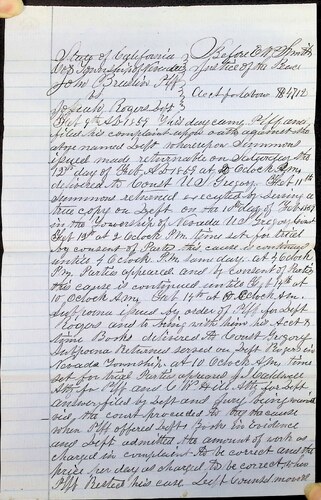 State of California } Before C W Smith
Township of Nevada } Justice of the Peace
John Bruslin Plff }
vs } Acct for labor $47.12
Josiah Rogers Deft }
Feby 9th AD 1869 This day came Plff and
filed his complaint upon oath against the
above named Deft whereupon Summons
issued made returnable on Saturday the
13th day of Feb AD 1869 at 2 Oclock P.M.
delivered to Const U S Gregory. Feb 11th
Summons returned executed by serving a
true copy on Deft on the 10th day of Feb 1869
in the Township of Nevada U S Gregory Const
Feb 13th at 2 Oclock P.M. time set for trial
by consent of Parties this cause is continued
until 7 Oclock P.M. same day. at 7 Oclock
P.M. Parties appeared and by consent of Parties
this cause is continued until Feb 14th at
10 Oclock A.M. Feb 14th at Oclock A.M.
Subpoena issued by order of Plff for Deft
Rogers and to bring with him his Acct &
time Books delivered to Const Gregory
Subpoena Returned served on Deft Rogers in
Nevada Township at 10 Oclock A.M. time
set for trial Parties appeared Caldwell
Atty for Plff and C W Hill Atty for Deft
answer filed by Deft and Jury being
the court proceeded to try the cause
when Plff offered Defts Books in evidence
and Deft admitted the amount of work as
charged in complaint to be correct and the
price per day as charged to be correct when
Plff Rested his case Defts Counsel moved